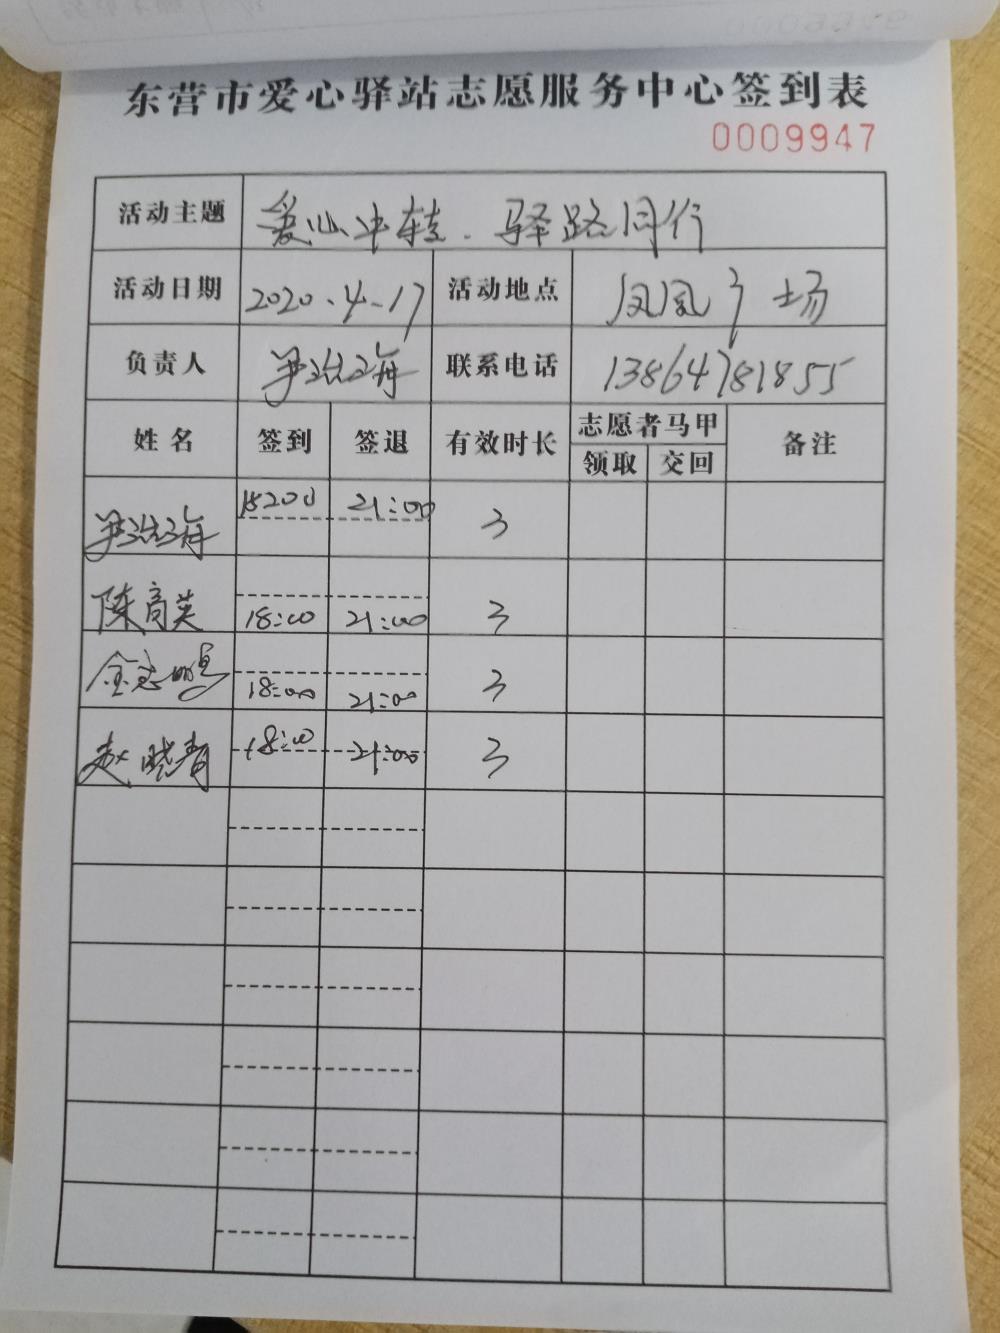 东营市爱心驿站志愿服务中心签到表
0009947
活动主题 爱心中转.驿路同行
活动日期 2020.4-17 活动地点 凤凰广场
负责人 尹洪海 联系电话 13864781855
姓名 签到 签退 有效时长 志愿者马甲 备注
领取 交回
尹洪海 18200 21:00 3
陈高英 18:00 21:00 3
金志明 18:00 21:00 3
赵晓青 18:00 21:00 3